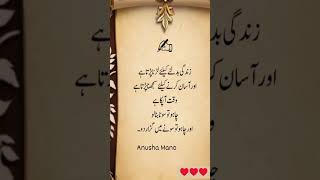 زندگی بدلنے کیلئے لڑنا پڑتا ہے
اور آسان کرنے کیلئے سمجھنا پڑتا ہے
وقت آپکا ہے
چاہو تو سونا بنا لو
اور چاہو تو سونے میں گزار دو۔
Anusha Mano